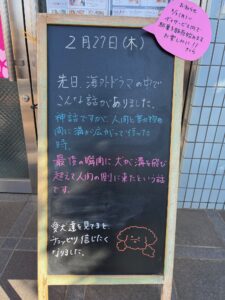 2月27日(木)
先日、海外ドラマの中で
こんな話がありました。
神話ですが、人間と動物の
間に溝が広がっていった
時、
最後の瞬間に犬が溝を飛び
超えて人間の側に来たという話
です。
愛犬達を見てると、
チョッピリ信じたく
なりました。
お知らせ